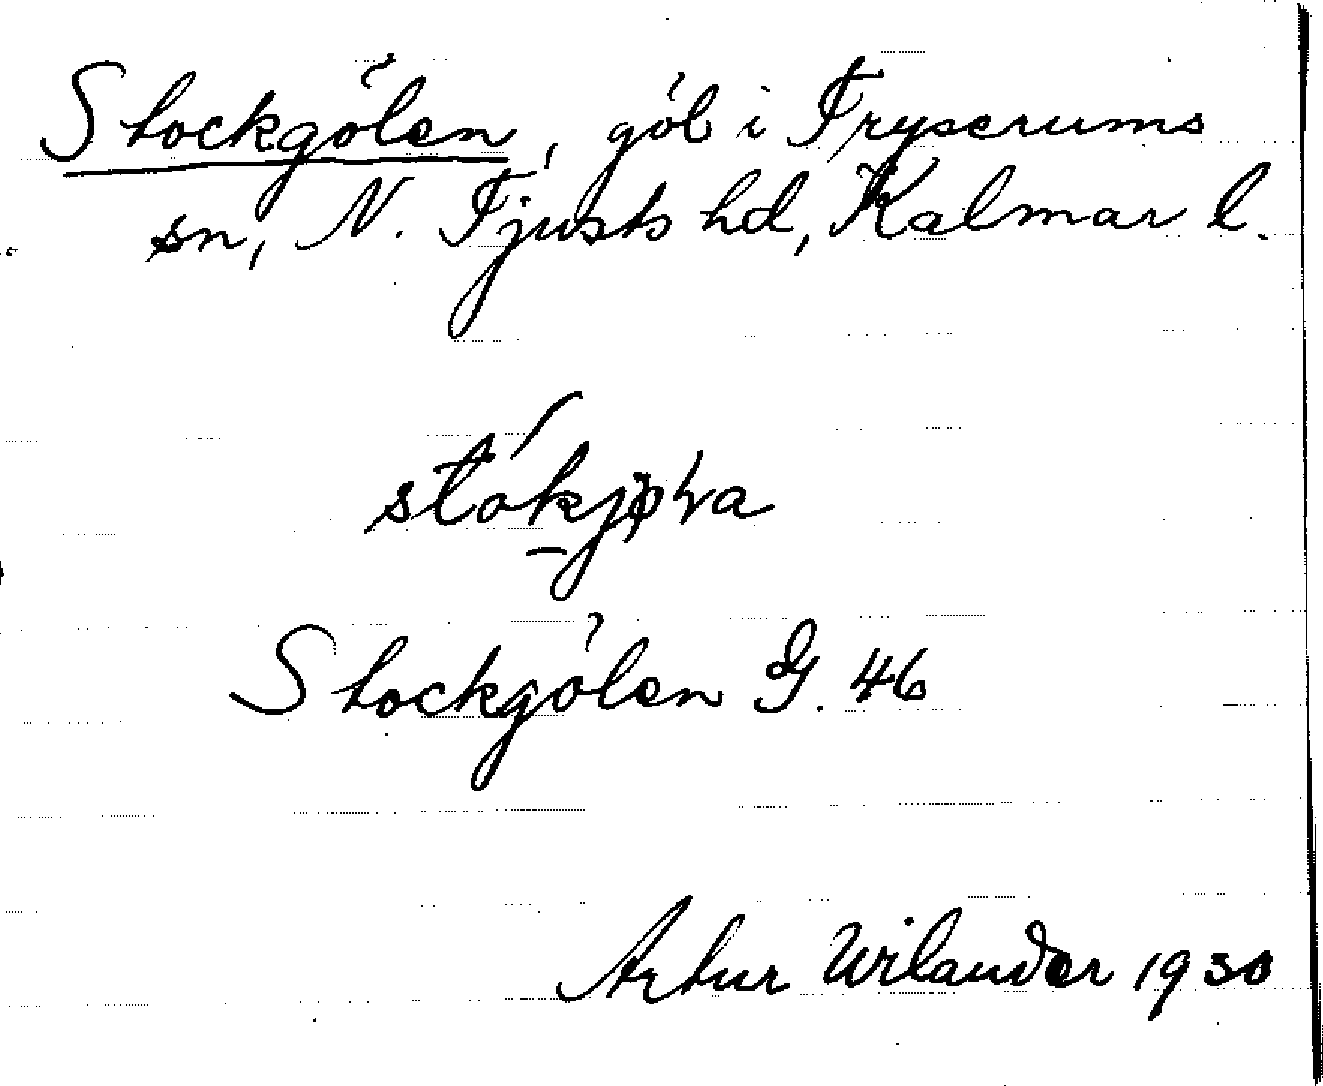 Stockgölen, göl i Tryserums
sn, N. Tjusts hd, Kalmar l.
Stockgölen G. 46
Artur Wilander 1930